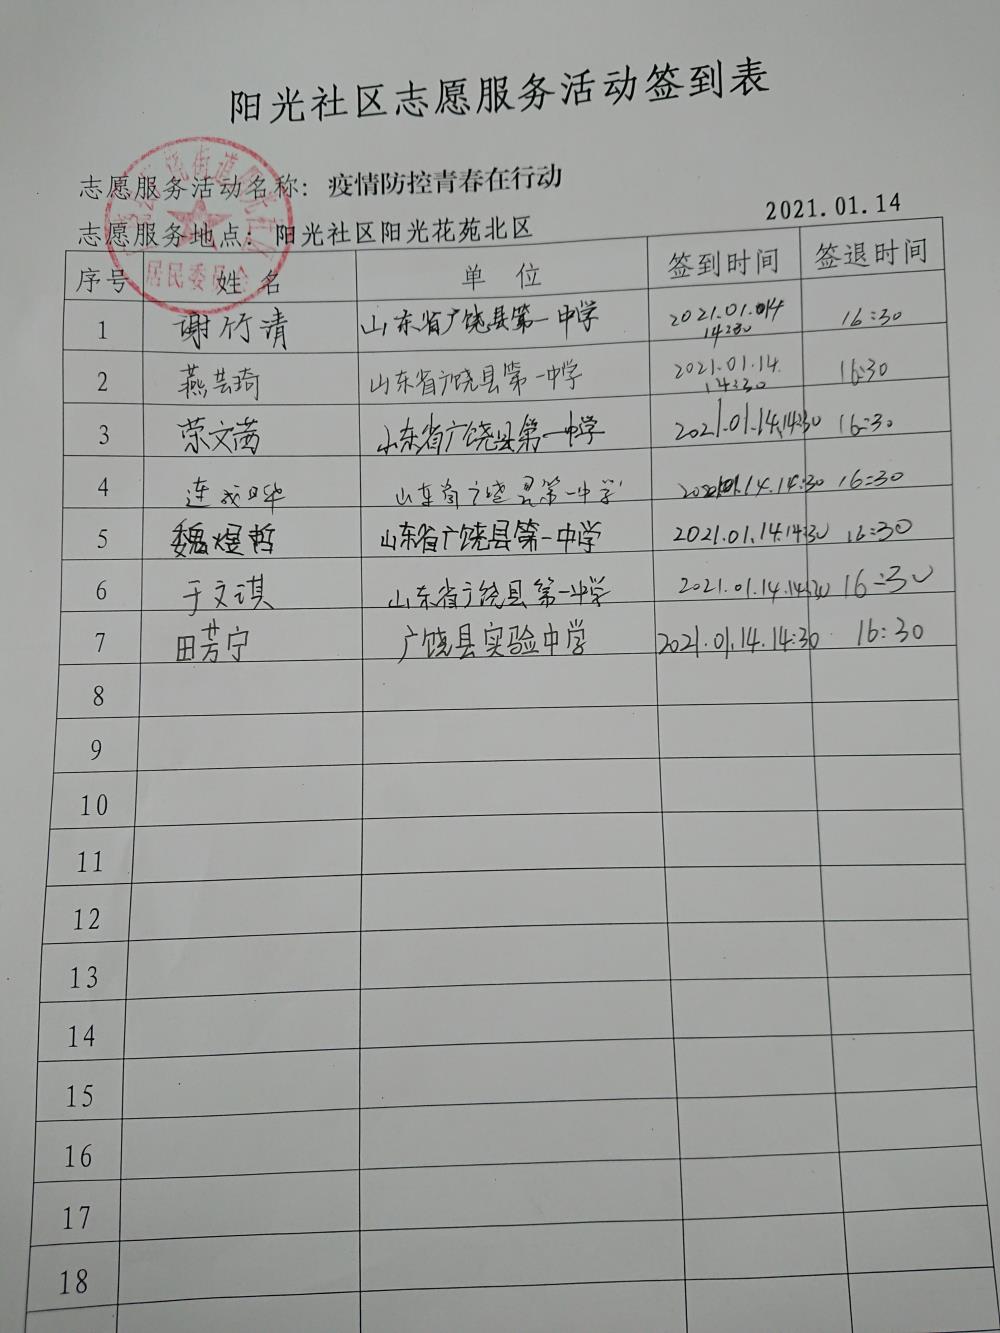 阳光社区志愿服务活动签到表
志愿服务活动名称：疫情防控青春在行动
2021.01.14
志愿服务地点：阳光社区阳光花苑北区
居民委员会
序号 姓名 单位 签到时间 签退时间
1 谢竹清 山东省广饶县第一中学 2021.01.014 14:30 16:30
2 燕芸琦 山东省广饶县第一中学 2021.01.14. 14:30 16:30
3 荣文茜 山东省广饶县第一中学 2021.01.14.14:30 16:30
4 连 山东省广饶县第一中学 01.14.14:30 16:30
5 魏煜哲 山东省广饶县第一中学 2021.01.14.14:30 16:30
6 于文琪 山东省广饶县第一中学 2021.01.14.14:30 16:30
7 田芳宁 广饶县实验中学 2021.01.14.14:30 16:30
8
9
10
11
12
13
14
15
16
17
18